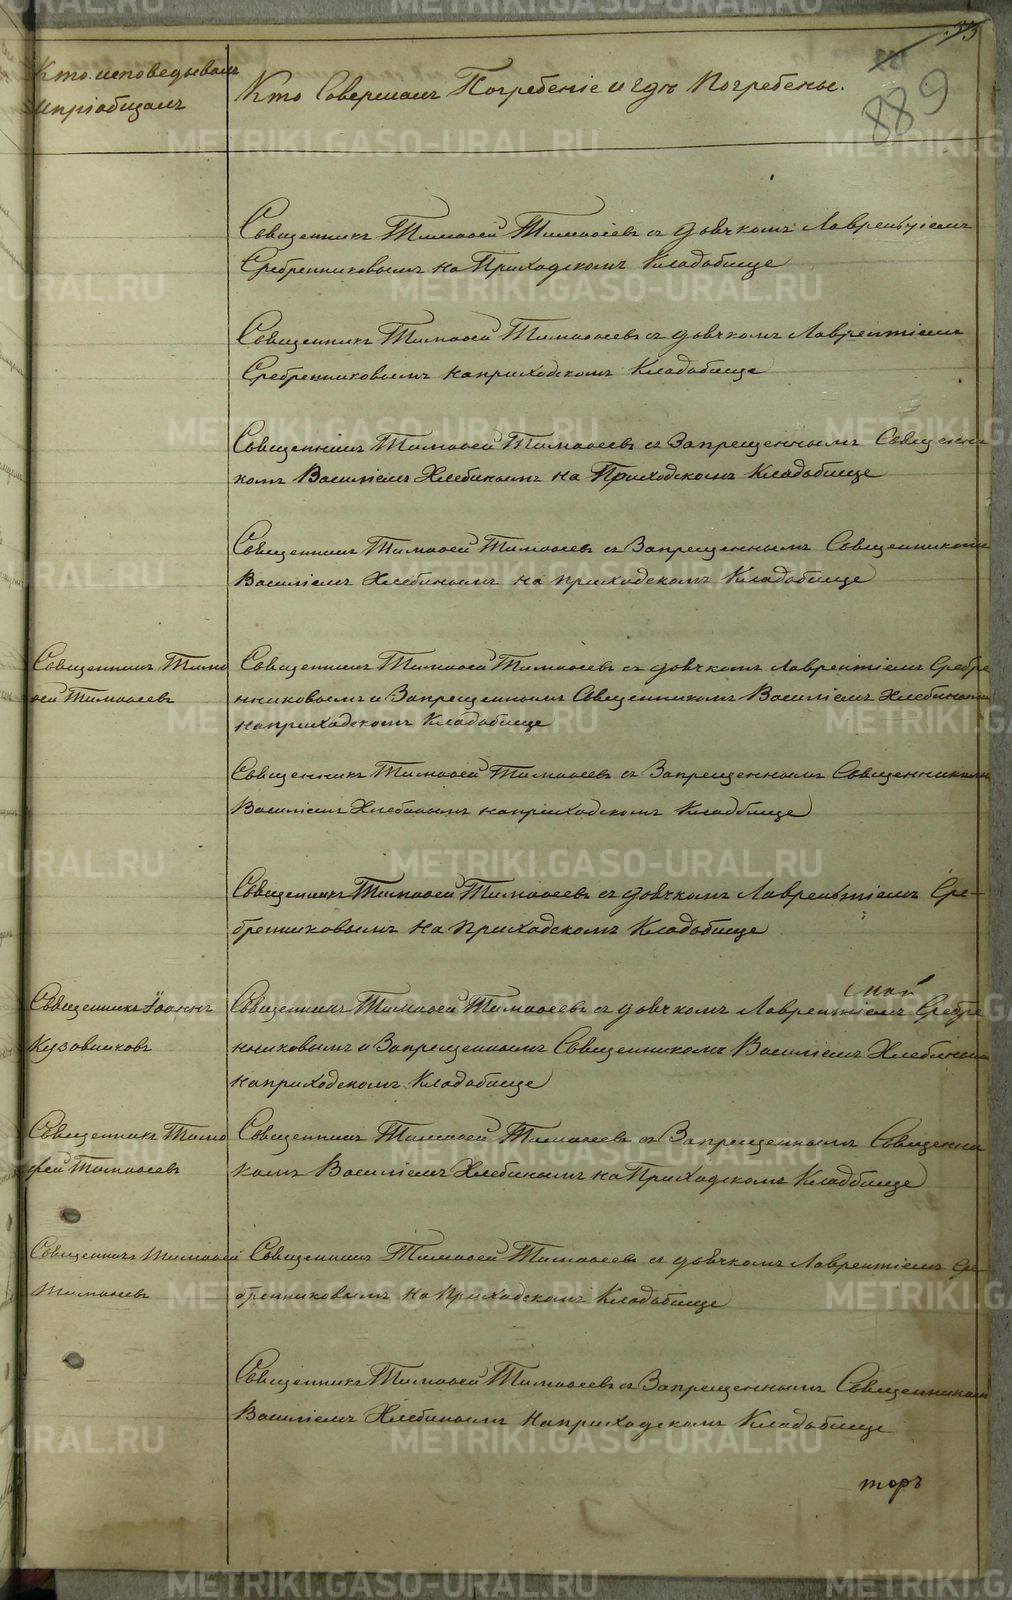 33
889
Кто исповедывалъ
и пріобщалъ
Кто Совершалъ Погребеніе и гдѣ Погребены.
Священникъ Тимоѳей Тимоѳеевъ съ дьячкомъ Лаврентіемъ
Сребренниковымъ на Приходскомъ Кладбище
Священникъ Тимоѳей Тимоѳеевъ съ дьячкомъ Лаврентіемъ
Сребренниковымъ на приходскомъ Кладбище
Священникъ Тимоѳей Тимоѳеевъ съ Запрещеннымъ Священни
комъ Василіемъ Хлебинымъ на Приходскомъ Кладбище
Священникъ Тимоѳей Тимоѳеевъ съ Запрещеннымъ Священникомъ
Василіемъ Хлебинымъ на приходскомъ Кладбище
Священникъ Тимо
ѳей Тимоѳеевъ
Священникъ Тимоѳей Тимоѳеевъ съ дьячкомъ Лаврентіемъ Сребре
нниковымъ и Запрещеннымъ Священникомъ Василіемъ Хлебинымъ
на приходскомъ Кладбище
Священникъ Тимоѳей Тимоѳеевъ съ Запрещеннымъ Священникомъ
Василіемъ Хлебинымъ на приходскомъ Кладбище
Священникъ Тимоѳей Тимоѳеевъ съ дьячкомъ Лаврентіемъ Сре-
бренниковымъ на приходскомъ Кладбище
Священникъ Іоаннъ
Кузовниковъ
Священникъ Тимоѳей Тимоѳеевъ съ дьячкомъ Лаврентіемъ Сребре
нниковымъ и Запрещеннымъ Священникомъ Василіемъ Хлебинымъ
на приходскомъ Кладбище
Священникъ Тимо
фей Тимоѳеевъ
Священникъ Тимоѳей Тимоѳеевъ съ Запрещеннымъ Священни
комъ Василіемъ Хлебинымъ на Приходскомъ Кладбище
Священникъ Тимоѳей
Тимоѳеевъ
Священникъ Тимоѳей Тимоѳеевъ съ дьячкомъ Лаврентіемъ Сре-
бренниковымъ на Приходскомъ Кладбище
Священникъ Тимоѳей Тимоѳеевъ съ Запрещеннымъ Священникомъ
Василіемъ Хлебинымъ на приходскомъ Кладбище
торъ
METRIKI.GASO-URAL.RU